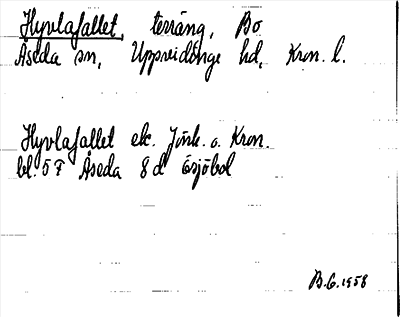 Hyvlafallet, terräng, Bo
Åseda sn, Uppvidinge hd, Kron. l.
Hyvlafallet ek. Jönk. o. Kron.
bl. 5F Åseda 8d Ösjöbol
B.G. 1958